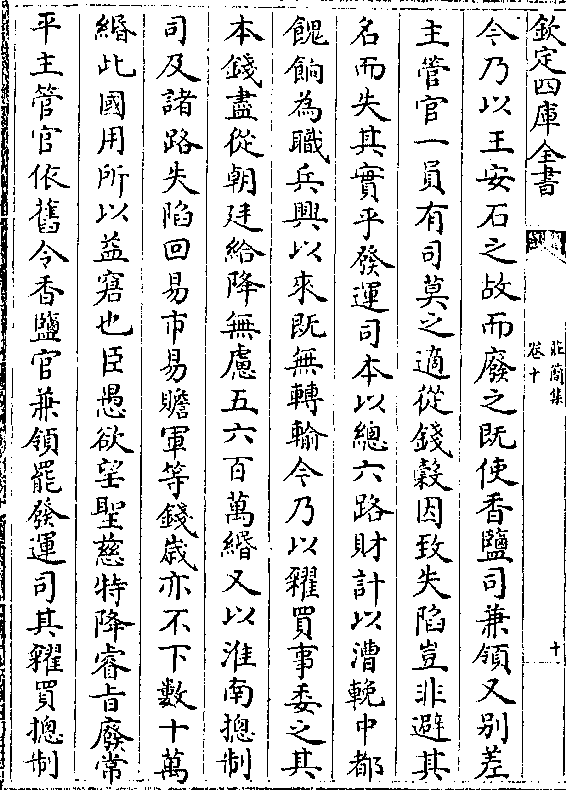 欽定四庫全書
莊簡集
卷十
十
今乃以王安石之故而廢之既使香鹽司兼領又别差
主管官一員有司莫之適從錢穀因致失陷豈非避其
名而失其實乎發運司本以總六路財計以漕輓中都
餽餉為職兵興以來既無轉輸今乃以糴買事委之其
本錢盡從朝廷給降無慮五六百萬緡又以淮南摠制
司及諸路失陷回易市易贍軍等錢歳亦不下數十萬
緡此國用所以益窘也臣愚欲望聖慈特降睿旨廢常
平主管官依舊令香鹽官兼領罷發運司其糴買摠制